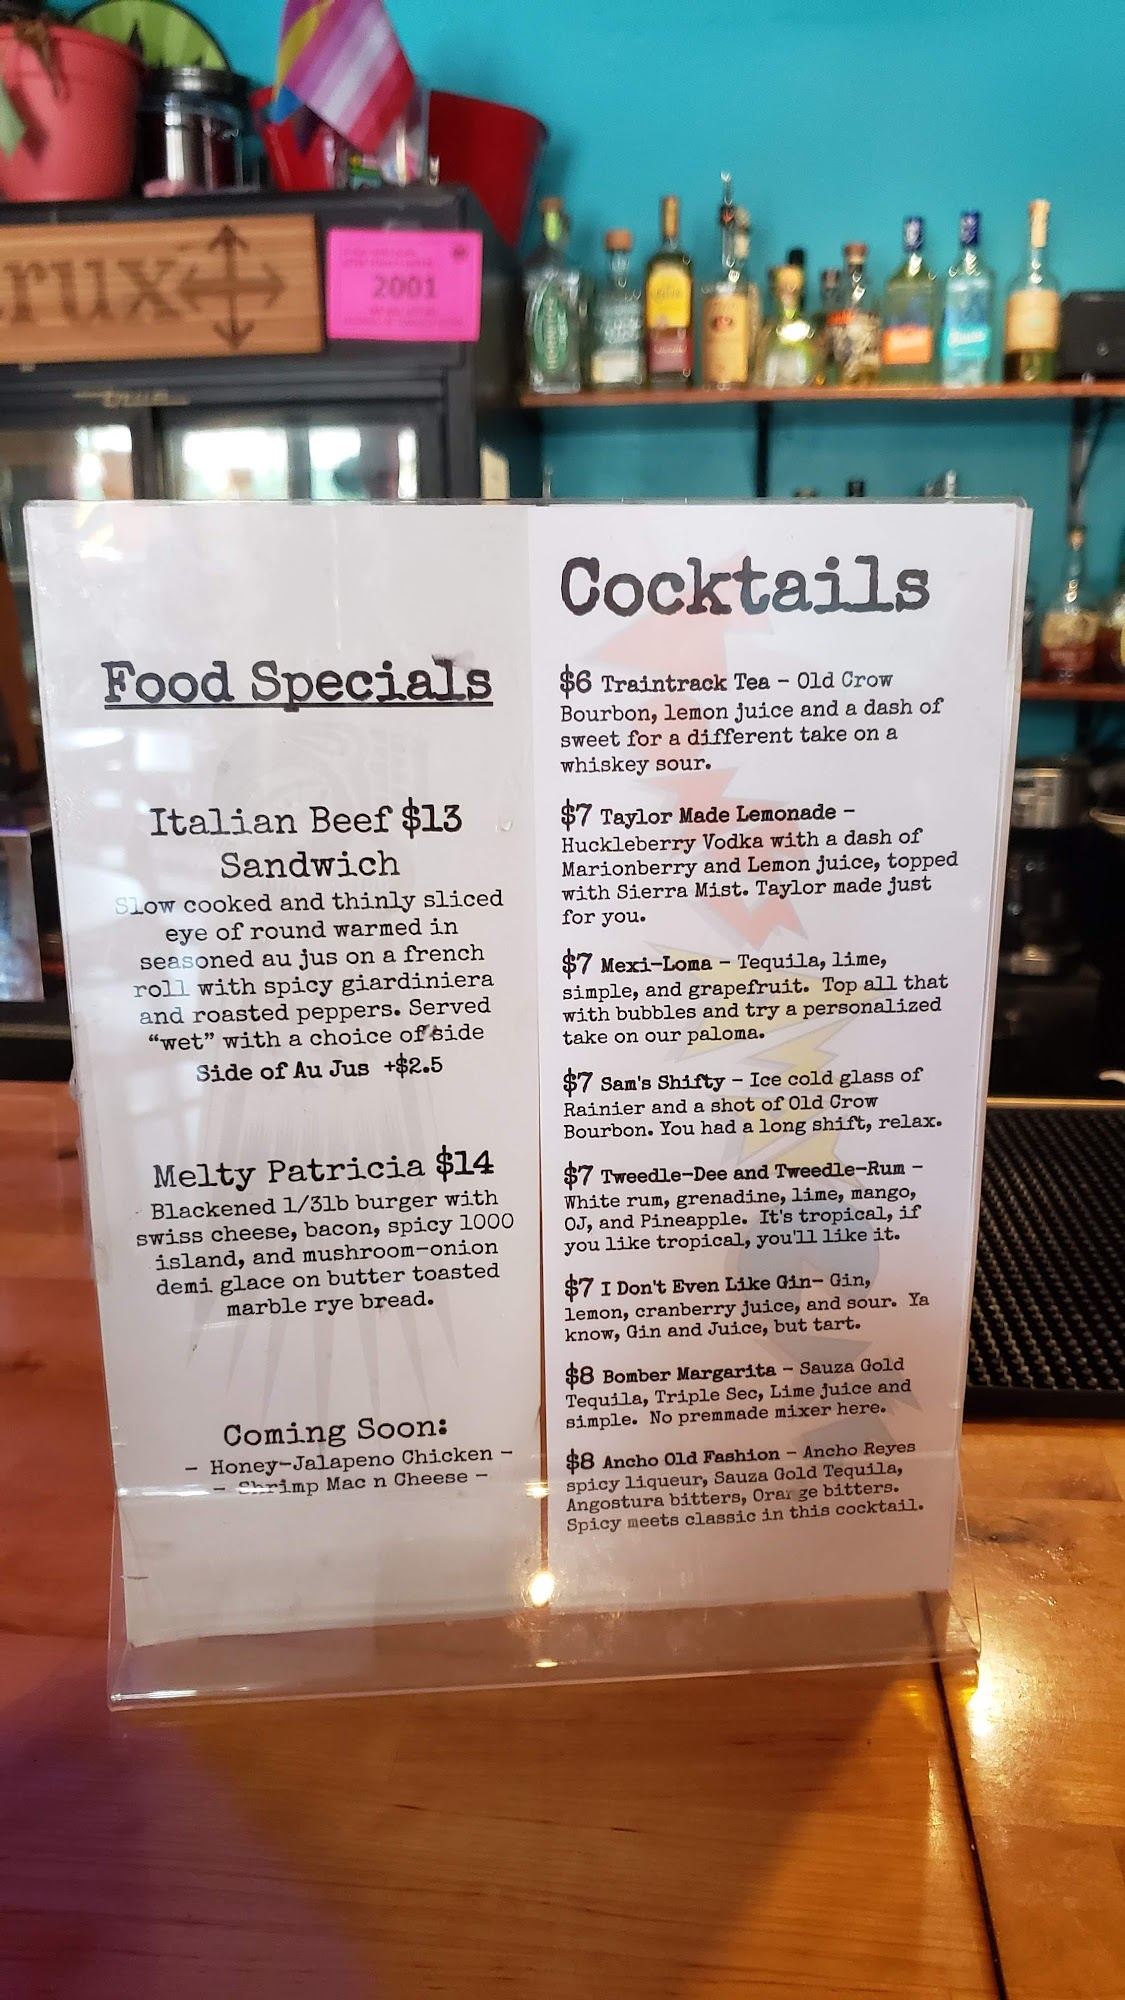 rux
2001
true
Food Specials
Italian Beef $13
Sandwich
Slow cooked and thinly sliced
eye of round warmed in
seasoned au jus on a french
roll with spicy giardiniera
and roasted peppers. Served
“wet” with a choice of side
Side of Au Jus +$2.5
Melty Patricia $14
Blackened 1/3lb burger with
swiss cheese, bacon, spicy 1000
island, and mushroom-onion
demi glace on butter toasted
marble rye bread.
Coming Soon:
- Honey-Jalapeno Chicken -
- Shrimp Mac n Cheese -
Cocktails
$6 Traintrack Tea - Old Crow
Bourbon, lemon juice and a dash of
sweet for a different take on a
whiskey sour.
$7 Taylor Made Lemonade -
Huckleberry Vodka with a dash of
Marionberry and Lemon juice, topped
with Sierra Mist. Taylor made just
for you.
$7 Mexi-Loma - Tequila, lime,
simple, and grapefruit. Top all that
with bubbles and try a personalized
take on our paloma.
$7 Sam's Shifty - Ice cold glass of
Rainier and a shot of Old Crow
Bourbon. You had a long shift, relax.
$7 Tweedle-Dee and Tweedle-Rum -
White rum, grenadine, lime, mango,
OJ, and Pineapple. It's tropical, if
you like tropical, you'll like it.
$7 I Don't Even Like Gin- Gin,
lemon, cranberry juice, and sour. Ya
know, Gin and Juice, but tart.
$8 Bomber Margarita - Sauza Gold
Tequila, Triple Sec, Lime juice and
simple. No premmade mixer here.
$8 Ancho Old Fashion - Ancho Reyes
spicy liqueur, Sauza Gold Tequila,
Angostura bitters, Orange bitters.
Spicy meets classic in this cocktail.